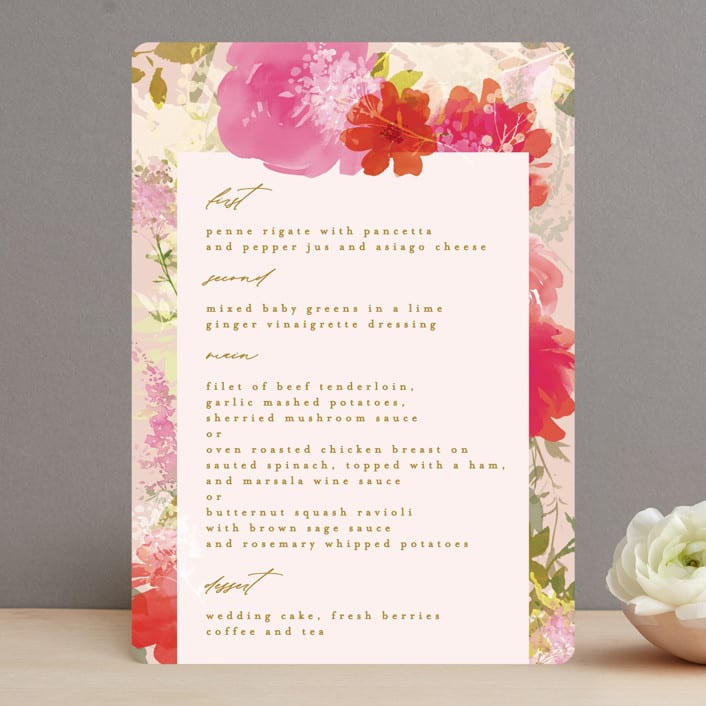 first
penne rigate with pancetta
and pepper jus and asiago cheese
second
mixed baby greens in a lime
ginger vinaigrette dressing
main
filet of beef tenderloin,
garlic mashed potatoes,
sherried mushroom sauce
or
oven roasted chicken breast on
sauted spinach, topped with a ham,
and marsala wine sauce
or
butternut squash ravioli
with brown sage sauce
and rosemary whipped potatoes
dessert
wedding cake, fresh berries
coffee and tea